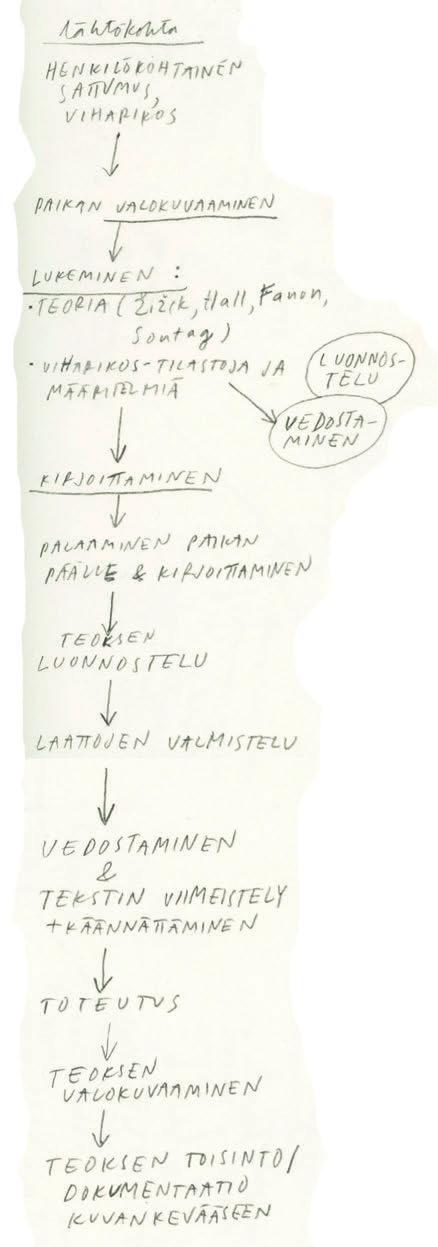 lähtökohta
HENKILÖKOHTAINEN
SATTUMUS,
VIHARIKOS
PAIKAN VALOKUVAAMINEN
LUKEMINEN :
• TEORIA ( Žižek, Hall, Fanon,
Sontag )
• VIHARIKOS-TILASTOJA JA
MÄÄRITELMIÄ
LUONNOS-
TELU
VEDOSTA-
MINEN
KIRJOITTAMINEN
PALAAMINEN PAIKAN
PÄÄLLE & KIRJOITTAMINEN
TEOKSEN
LUONNOSTELU
LAATTOJEN VALMISTELU
VEDOSTAMINEN
&
TEKSTIN VIIMEISTELY
+ KÄÄNNÄTTÄMINEN
TOTEUTUS
TEOKSEN
VALOKUVAAMINEN
TEOKSEN TOISINTO/
DOKUMENTAATIO
KUVAN KEVÄÄSEEN